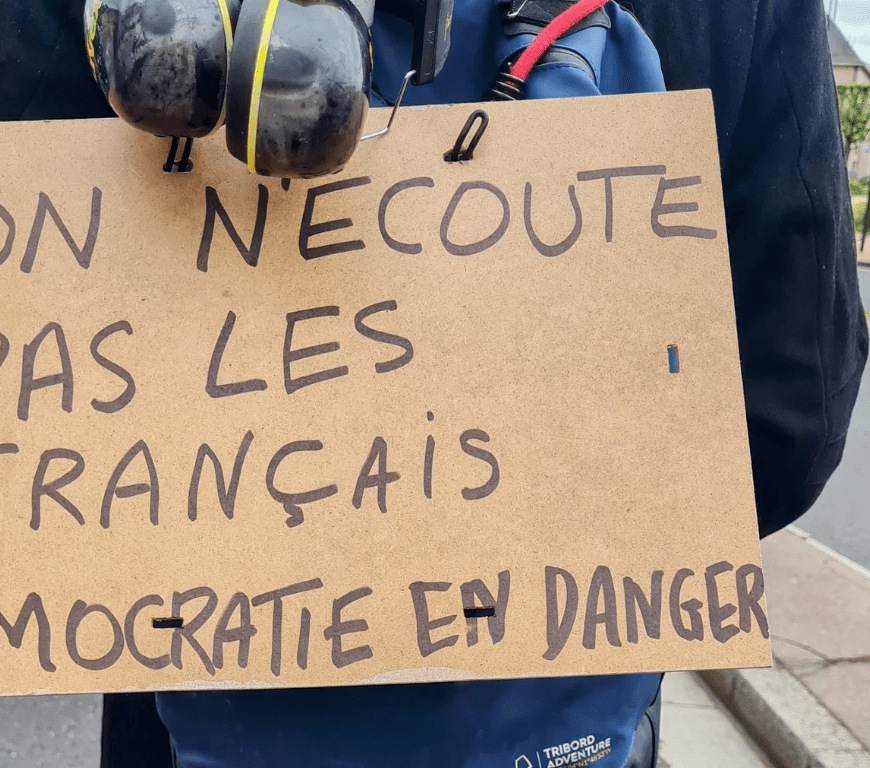 ON N'ECOUTE
PAS LES
FRANÇAiS
MOCRATIE EN DANGER
TRIBORD
ADVENTURE